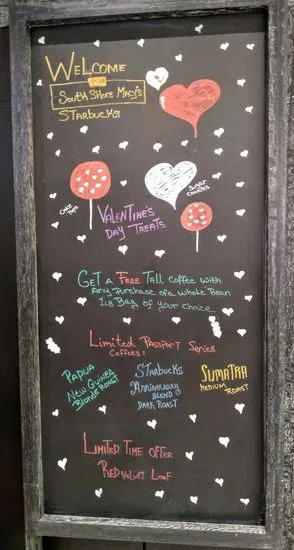 Welcome
TO
South Shore Macy's
Starbucks
Cake Pops
Sugar Cookies
Valentine's
Day Treats
Get a Free Tall Coffee with
Any Purchase of a Whole Bean
1LB Bag of your choice
Limited Passport Series
Coffees:
Papua
New Guinea
Blonde Roast
Starbucks
Anniversary
Blend
Dark Roast
Sumatra
Medium
Roast
Limited Time Offer
Red Velvet Loaf